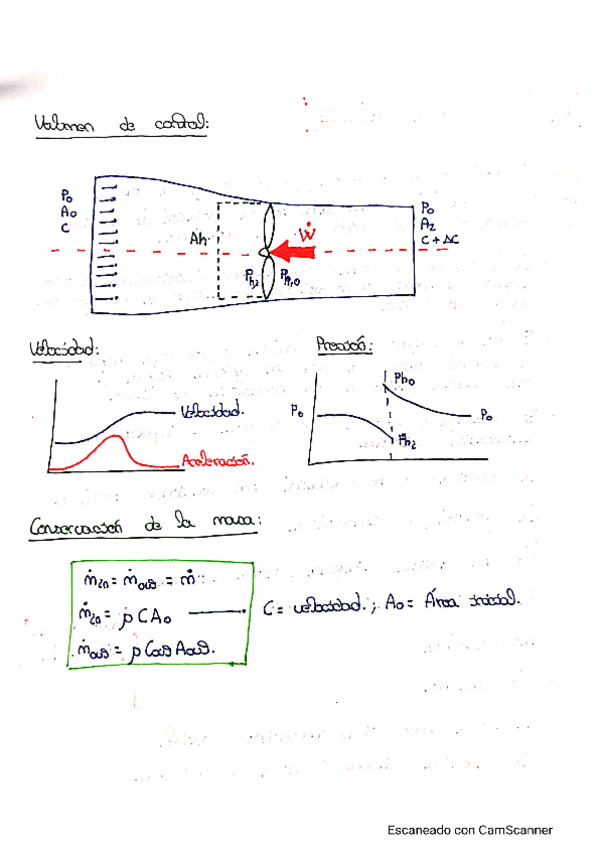 Volumen de control:
P₀
A₀
C
Ah
Ẇ
Ph,i
Ph,o
P₀
A₂
C + ΔC
Velocidad:
Velocidad.
Aceleración.
Presión:
P₀
Pho
Phi
P₀
Conservación de la masa:
ṁin = ṁout = ṁ
ṁin = ρ C A₀
C = velocidad. ; A₀ = Área inicial.
ṁout = ρ Cout Aout.
Escaneado con CamScanner